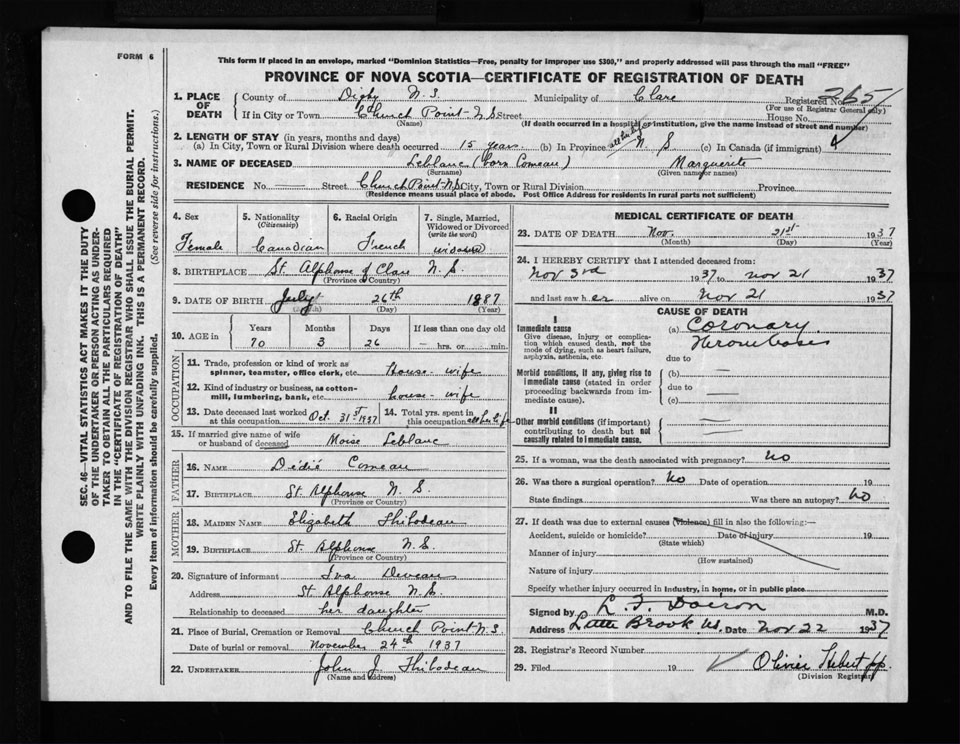 FORM 6
This form if placed in an envelope, marked "Dominion Statistics—Free, penalty for improper use $300," and properly addressed will pass through the mail "FREE"
PROVINCE OF NOVA SCOTIA—CERTIFICATE OF REGISTRATION OF DEATH
1. PLACE OF DEATH
County of Digby N.S. Municipality of Clare Registered No. 365
(For use of Registrar General only)
If in City or Town Church Point-N.S. Street House No.
(Name) (If death occurred in a hospital or institution, give the name instead of street and number)
2. LENGTH OF STAY (in years, months and days)
(a) In City, Town or Rural Division where death occurred 15 years. (b) In Province all her life N. S (c) In Canada (if immigrant)
3. NAME OF DECEASED Leblanc (born Comeau) Marguerite
(Surname) (Given name or names)
RESIDENCE No. — Street. Church Point-N.S. City, Town or Rural Division Province
(Residence means usual place of abode. Post Office Address for residents in rural parts not sufficient)
4. Sex
Female
5. Nationality
(Citizenship)
Canadian
6. Racial Origin
French
7. Single, Married, Widowed or Divorced
(write the word)
widowed
8. BIRTHPLACE St. Alphonse of Clare N.S.
(Province or Country)
9. DATE OF BIRTH July 26th 1887
(Month) (Day) (Year)
10. AGE in
Years Months Days If less than one day old
70 3 26 — hrs. or min.
OCCUPATION
11. Trade, profession or kind of work as spinner, teamster, office clerk, etc. House-wife
12. Kind of industry or business, as cotton-mill, lumbering, bank, etc. house-wife
13. Date deceased last worked at this occupation Oct. 31st 1937
14. Total yrs. spent in this occupation all her life
15. If married give name of wife or husband of deceased Moise Leblanc
FATHER
16. NAME Dédié Comeau
17. BIRTHPLACE St. Alphonse N. S.
(Province or Country)
MOTHER
18. MAIDEN NAME Elizabeth Thibodeau
19. BIRTHPLACE St. Alphonse N.S.
(Province or Country)
20. Signature of informant Iva Deveau
Address St. Alphonse N.S.
Relationship to deceased her daughter
21. Place of Burial, Cremation or Removal Church Point N.S
Date of burial or removal November 24th 1937
22. UNDERTAKER John J. Thibodeau
(Name and address)
MEDICAL CERTIFICATE OF DEATH
23. DATE OF DEATH Nov. 21st 1937
(Month) (Day) (Year)
24. I HEREBY CERTIFY that I attended deceased from:
Nov 3rd 1937 to nov 21 1937
and last saw her alive on Nov 21 1937
CAUSE OF DEATH
I
Immediate cause
Give disease, injury or complication which caused death, not the mode of dying, such as heart failure, asphyxia, asthenia, etc.
(a) Coronary
Thrombosis
due to
Morbid conditions, if any, giving rise to immediate cause (stated in order proceeding backwards from immediate cause).
(b) —
due to
(c) —
II
Other morbid conditions (if important) contributing to death but not causally related to immediate cause.
25. If a woman, was the death associated with pregnancy? no
26. Was there a surgical operation? No Date of operation 19
State findings Was there an autopsy? No
27. If death was due to external causes (Violence) fill in also the following:—
Accident, suicide or homicide? Date of injury 19
(State which)
Manner of injury
(How sustained)
Nature of injury
Specify whether injury occurred in Industry, in home, or in public place
Signed by L. F. Doiron M.D.
Address Little Brook N.S. Date Nov 22 1937
28. Registrar's Record Number
29. Filed 19 Olivier Hebert
(Division Registrar)
SEC. 46—VITAL STATISTICS ACT MAKES IT THE DUTY
OF THE UNDERTAKER OR PERSON ACTING AS UNDER-
TAKER TO OBTAIN ALL THE PARTICULARS REQUIRED
IN THE "CERTIFICATE OF REGISTRATION OF DEATH"
AND TO FILE THE SAME WITH THE DIVISION REGISTRAR WHO SHALL ISSUE THE BURIAL PERMIT.
WRITE PLAINLY WITH UNFADING INK. THIS IS A PERMANENT RECORD.
Every item of information should be carefully supplied. (See reverse side for instructions.)